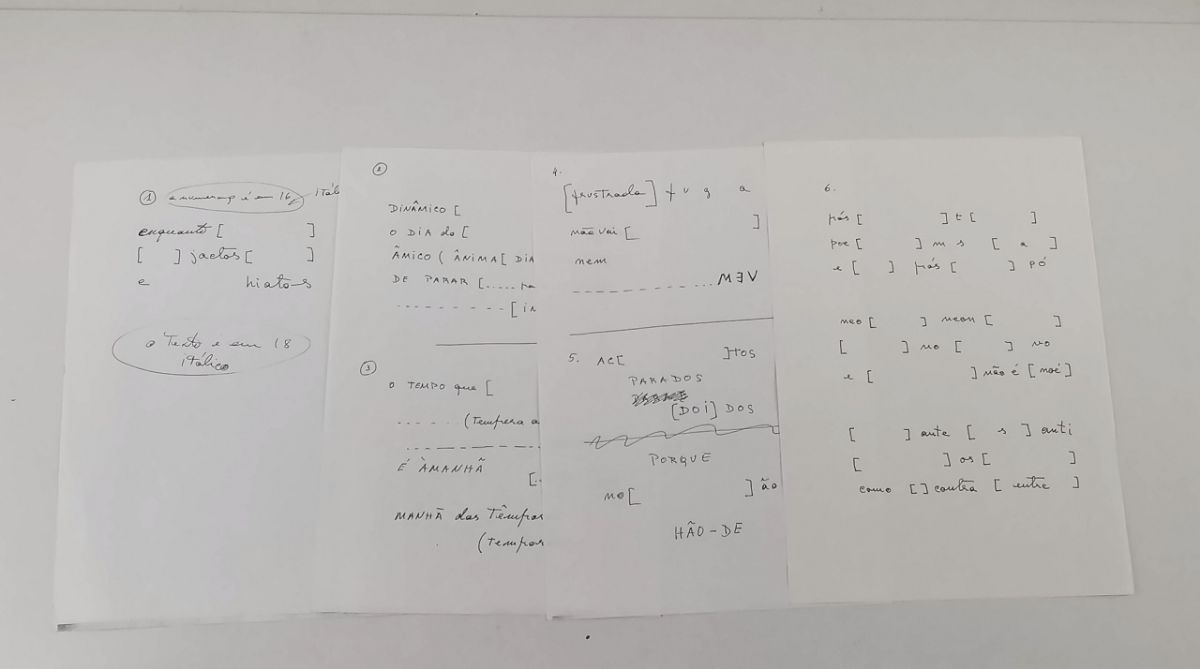 ① a numeração é em 16, itál
enquanto [ ]
[ ] jactos [ ]
e hiato-s
o Texto é em 18
itálico
②
DINÂMICO [
O DIA do [
ÂMICO ( ÂNIMA [ DIA
DE PARAR [.....pa
- - - - - - - - - [ in
③
O TEMPO que [
- - - - - (Tempera a
- - - - - - - - - -
É ÀMANHÃ
[..
MANHÃ das Têmpor
. (Tempor
4.
[frustrada] f u g a
não vai [ ]
nem
- - - - - - - - - - ... MƎV
5. AC[ ]tos
PARADOS
[DOi] DOS
PORQUE
no[ ] ão
HÃO-DE
6.
pós [ ] t [ ]
poe [ ] m s [ a ]
e [ ] pós [ ] pó
neo [ ] neon [ ]
[ ] no [ ] vo
e [ ] não é [noé]
[ ] ante [ s ] anti
[ ] os [ ]
como [ ] contra [ entre ]